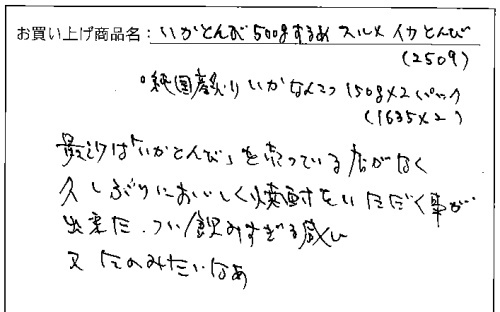 お買い上げ商品名：いかとんび500gするめスルメイカとんび
(2509)
○純国産炙りいかなんこつ150g×2パック
(1635×2)
最近は「いかとんび」を売っている店がなく
久しぶりにおいしく焼酎をいただく事が
出来た。つい飲みすぎる感い
又たのみたいなあ